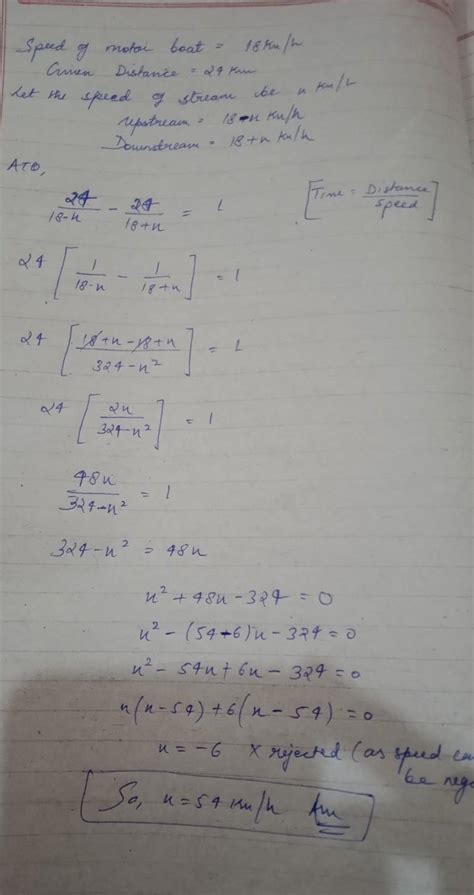 Speed of motor boat = 18 Km/h
Given Distance = 24 Km
Let the speed of stream be x Km/h
Upstream = 18-x Km/h
Downstream = 18+x Km/h
ATQ,
24/(18-x) - 24/(18+x) = 1 [Time = Distance/Speed]
24 [1/(18-x) - 1/(18+x)] = 1
24 [(18+x-18+x)/(324-x²)] = 1
24 [2x/(324-x²)] = 1
48x/(324-x²) = 1
324-x² = 48x
x² + 48x - 324 = 0
x² - (54-6)x - 324 = 0
x² - 54x + 6x - 324 = 0
x(x-54) + 6(x-54) = 0
x = -6 × rejected (as speed can
be nega
So, x = 54 Km/h Ans